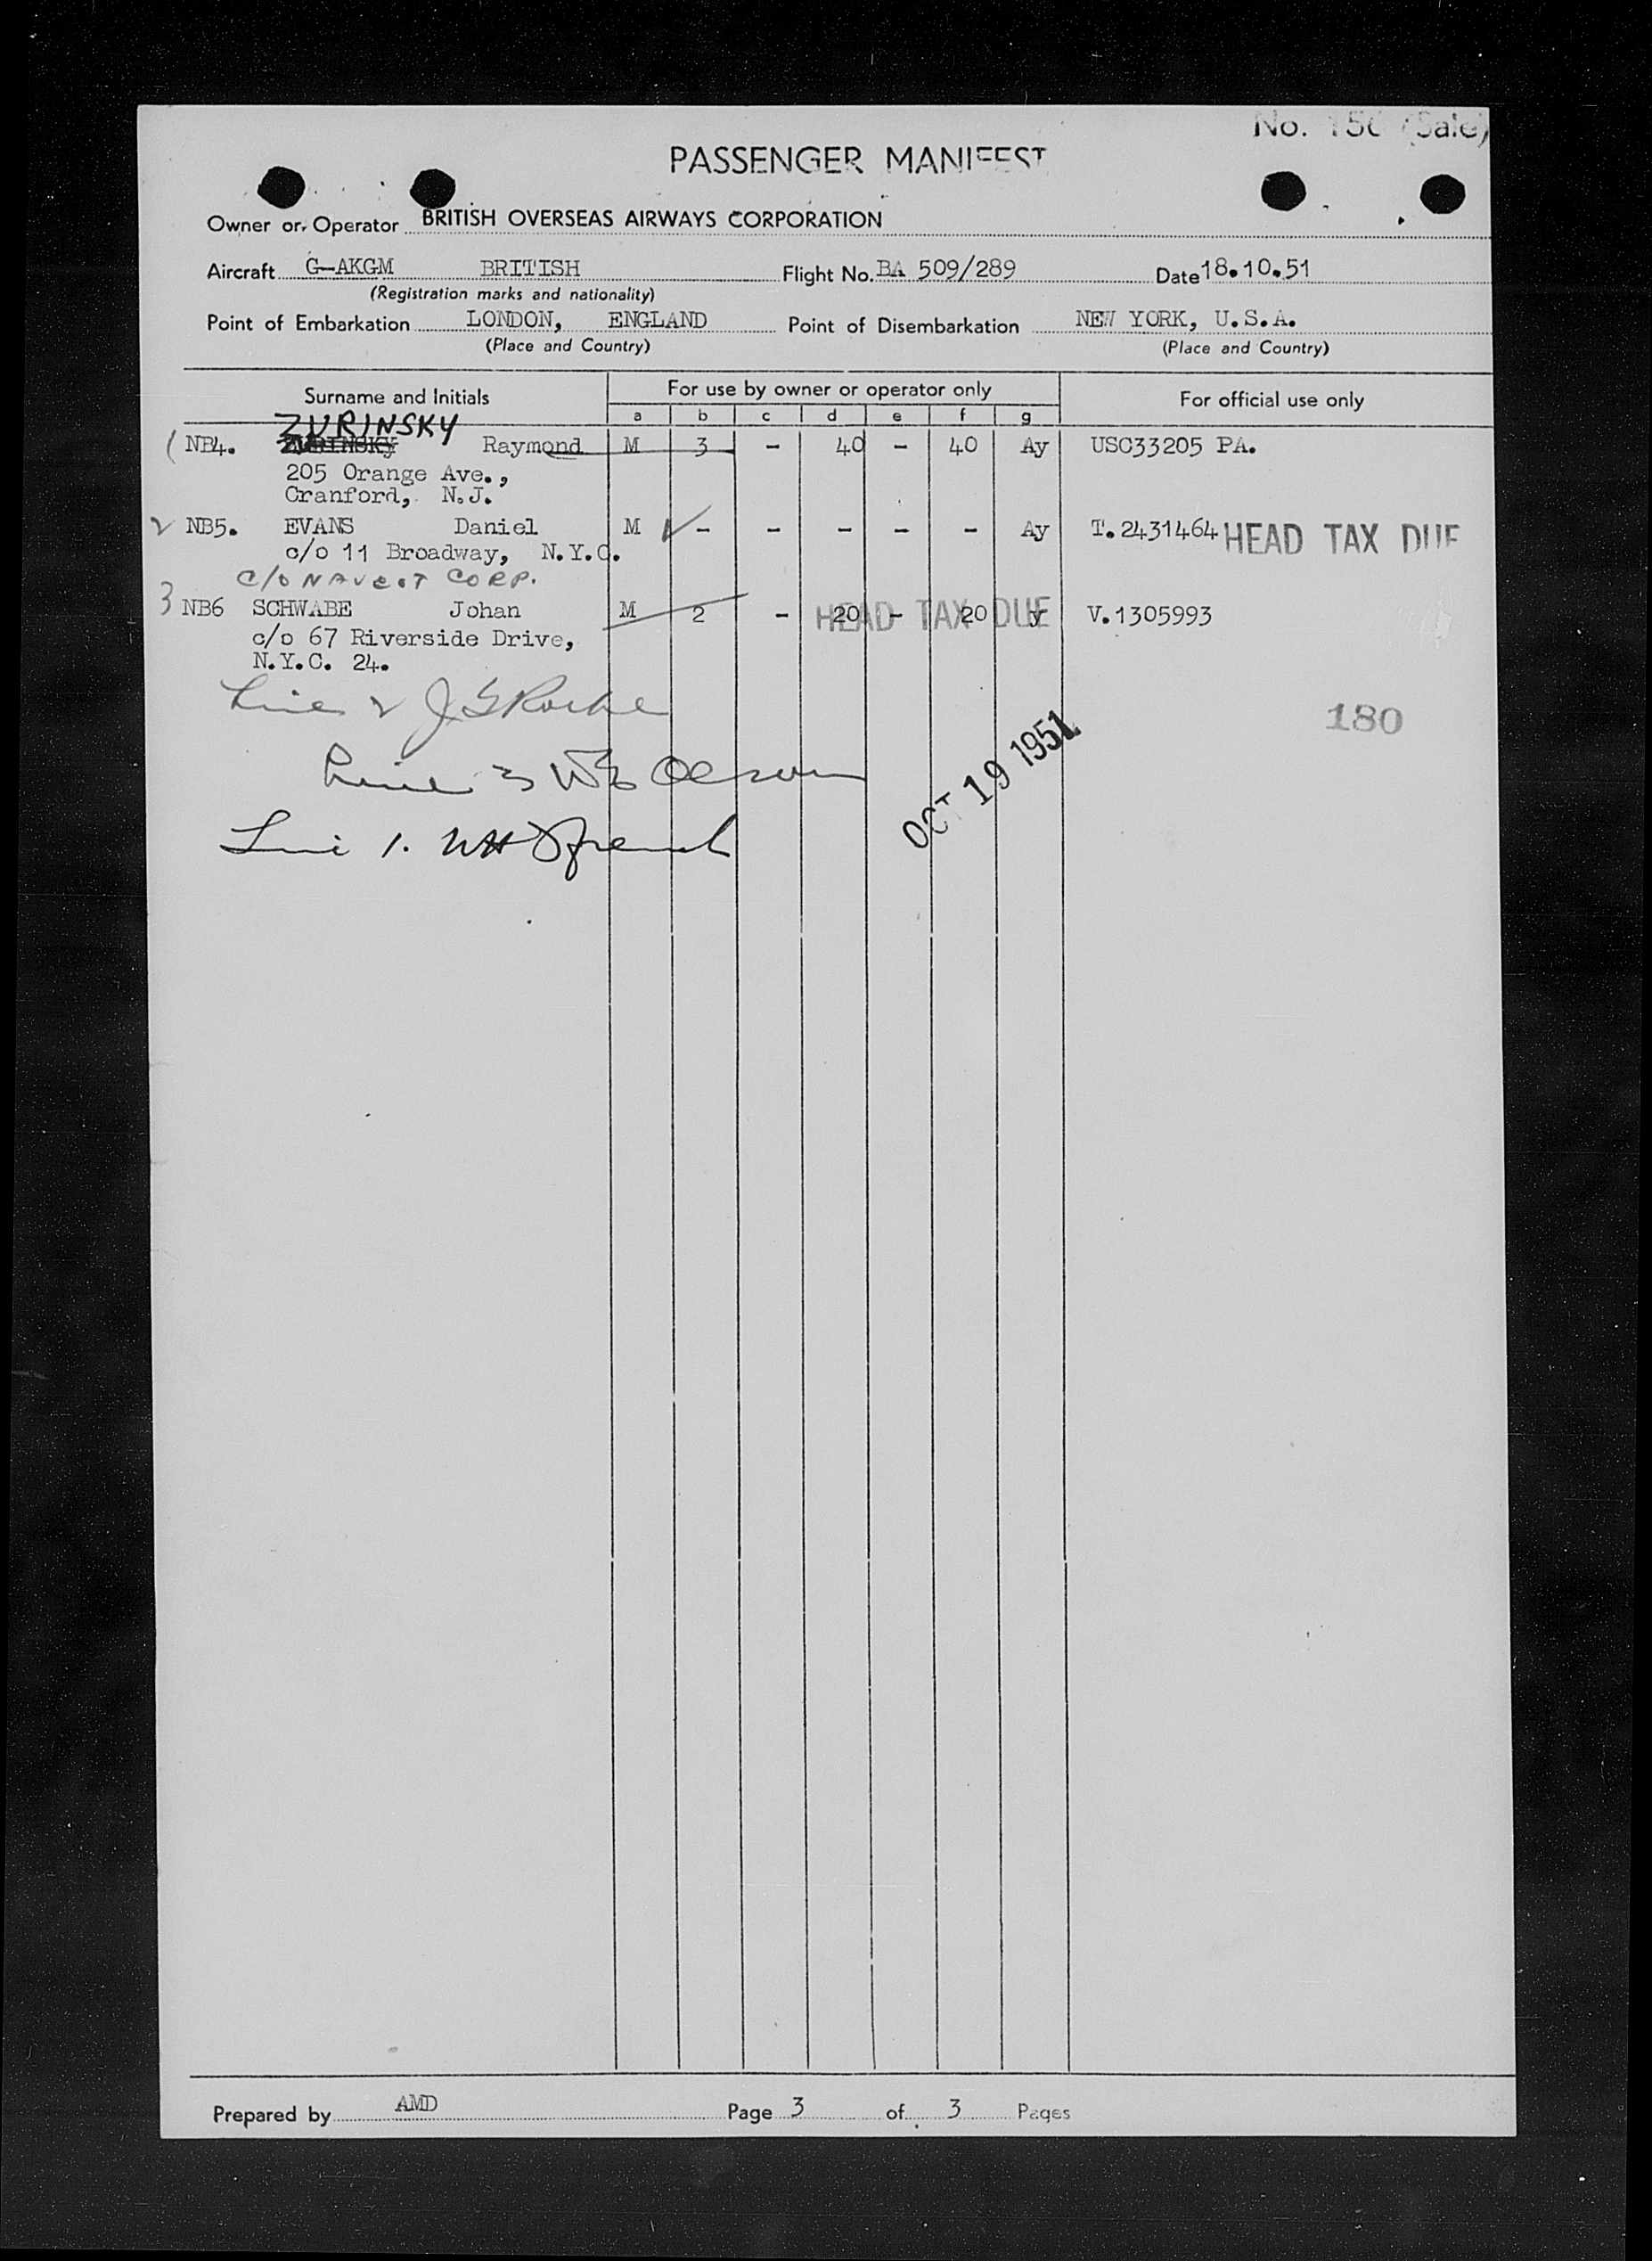 PASSENGER MANIFEST
Owner or Operator BRITISH OVERSEAS AIRWAYS CORPORATION
Aircraft G-AKGM BRITISH Flight No. BA 509/289 Date 18.10.51
(Registration marks and nationality)
Point of Embarkation LONDON, ENGLAND Point of Disembarkation NEW YORK, U.S.A.
(Place and Country) (Place and Country)
Surname and Initials For use by owner or operator only For official use only
a b c d e f g
ZURINSKY
1 NB4. ZURINSKY Raymond M 3 - 40 - 40 Ay USC33205 PA.
205 Orange Ave.,
Cranford, N.J.
2 NB5. EVANS Daniel M - - - - - Ay T.2431464 HEAD TAX DUE
c/o 11 Broadway, N.Y.C.
C/O CORP.
3 NB6 SCHWABE Johan M 2 - 20 - 20 y V.1305993
HEAD TAX DUE
c/o 67 Riverside Drive,
N.Y.C. 24.
Line 2
180
Line 3
OCT 19 1951
Line 1.
Prepared by AMD Page 3 of 3 Pages